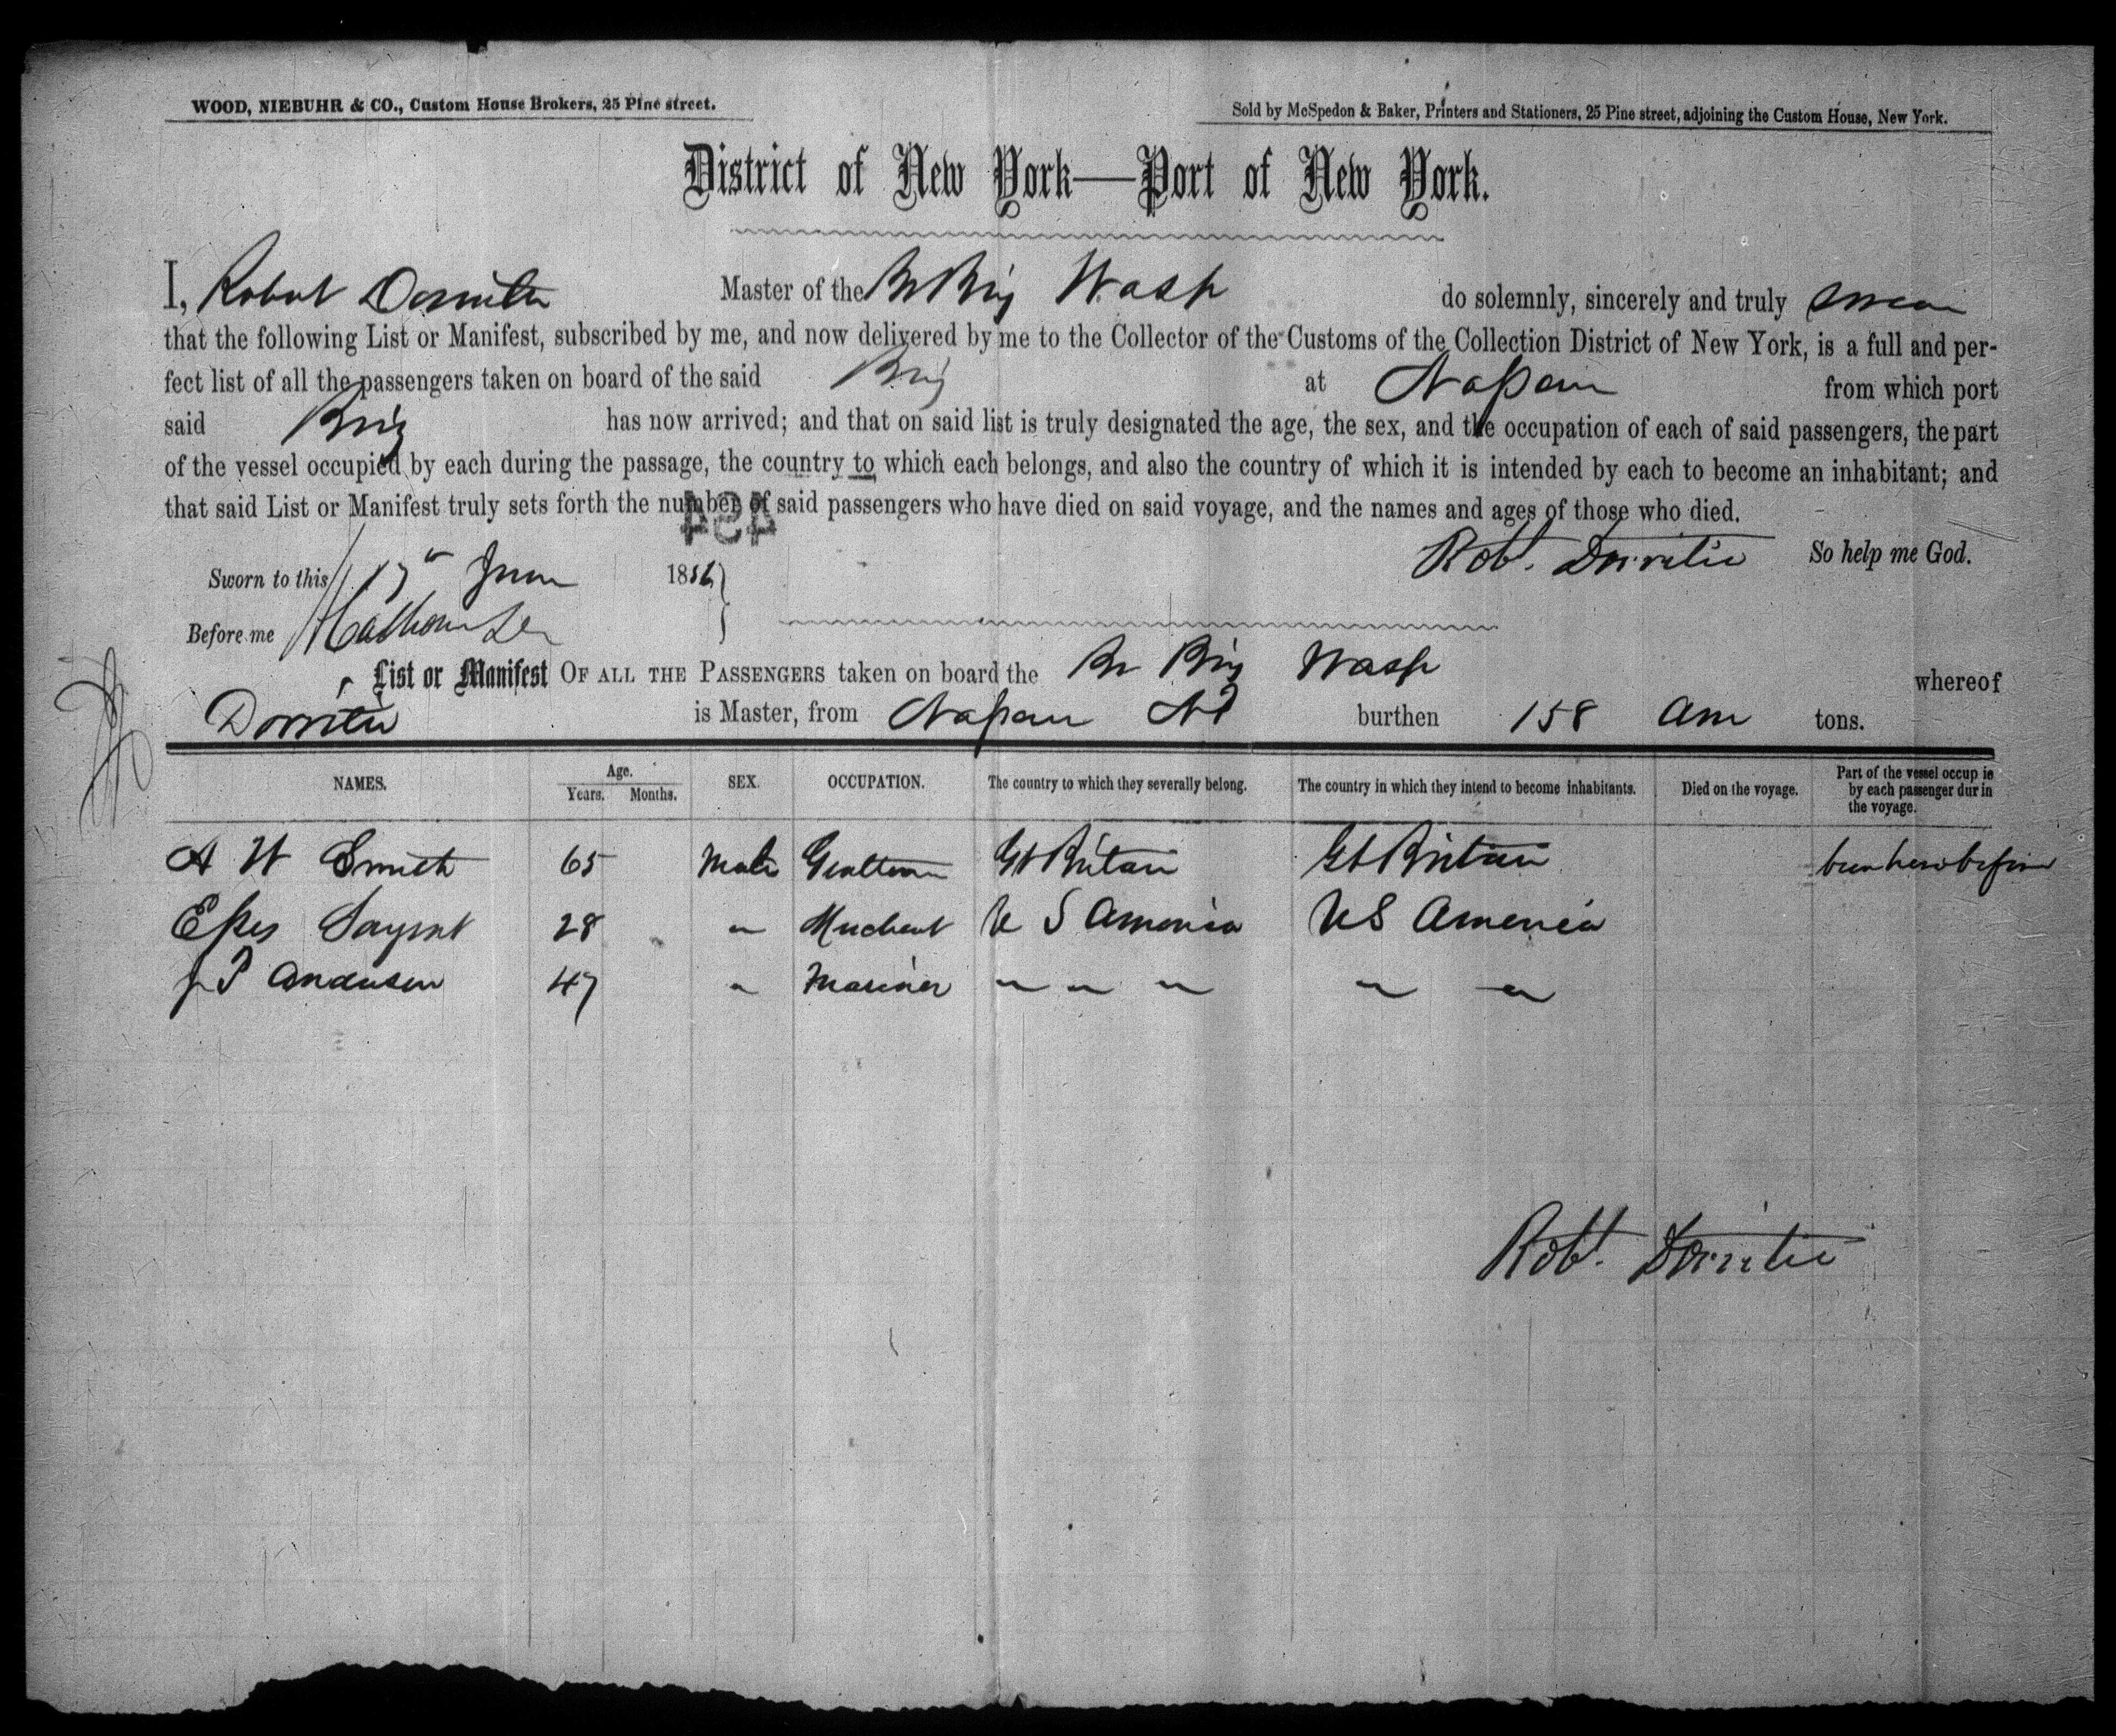 WOOD, NIEBUHR & CO., Custom House Brokers, 25 Pine street.
Sold by McSpedon & Baker, Printers and Stationers, 25 Pine street, adjoining the Custom House, New York.
District of New York—Port of New York.
I, Robert Master of the Br Brig Wasp do solemnly, sincerely and truly swear
that the following List or Manifest, subscribed by me, and now delivered by me to the Collector of the Customs of the Collection District of New York, is a full and per-
fect list of all the passengers taken on board of the said Brig at Nassau from which port
said Brig has now arrived; and that on said list is truly designated the age, the sex, and the occupation of each of said passengers, the part
of the vessel occupied by each during the passage, the country to which each belongs, and also the country of which it is intended by each to become an inhabitant; and
that said List or Manifest truly sets forth the number of said passengers who have died on said voyage, and the names and ages of those who died.
494
Robt. So help me God.
Sworn to this 17th June 1856
Before me
List or Manifest OF ALL THE PASSENGERS taken on board the Br Brig Wasp whereof
is Master, from Nassau NP burthen 158 Am tons.
NAMES. Age. Years. Months. SEX. OCCUPATION. The country to which they severally belong. The country in which they intend to become inhabitants. Died on the voyage. Part of the vessel occup ie by each passenger dur in the voyage.
A W Smith 65 Male Gentleman Gt Britain Gt Britain been here before
Epes Sargent 28 " Merchant U S America US America
J P Anderson 47 " Mariner " " " " "
Robt.